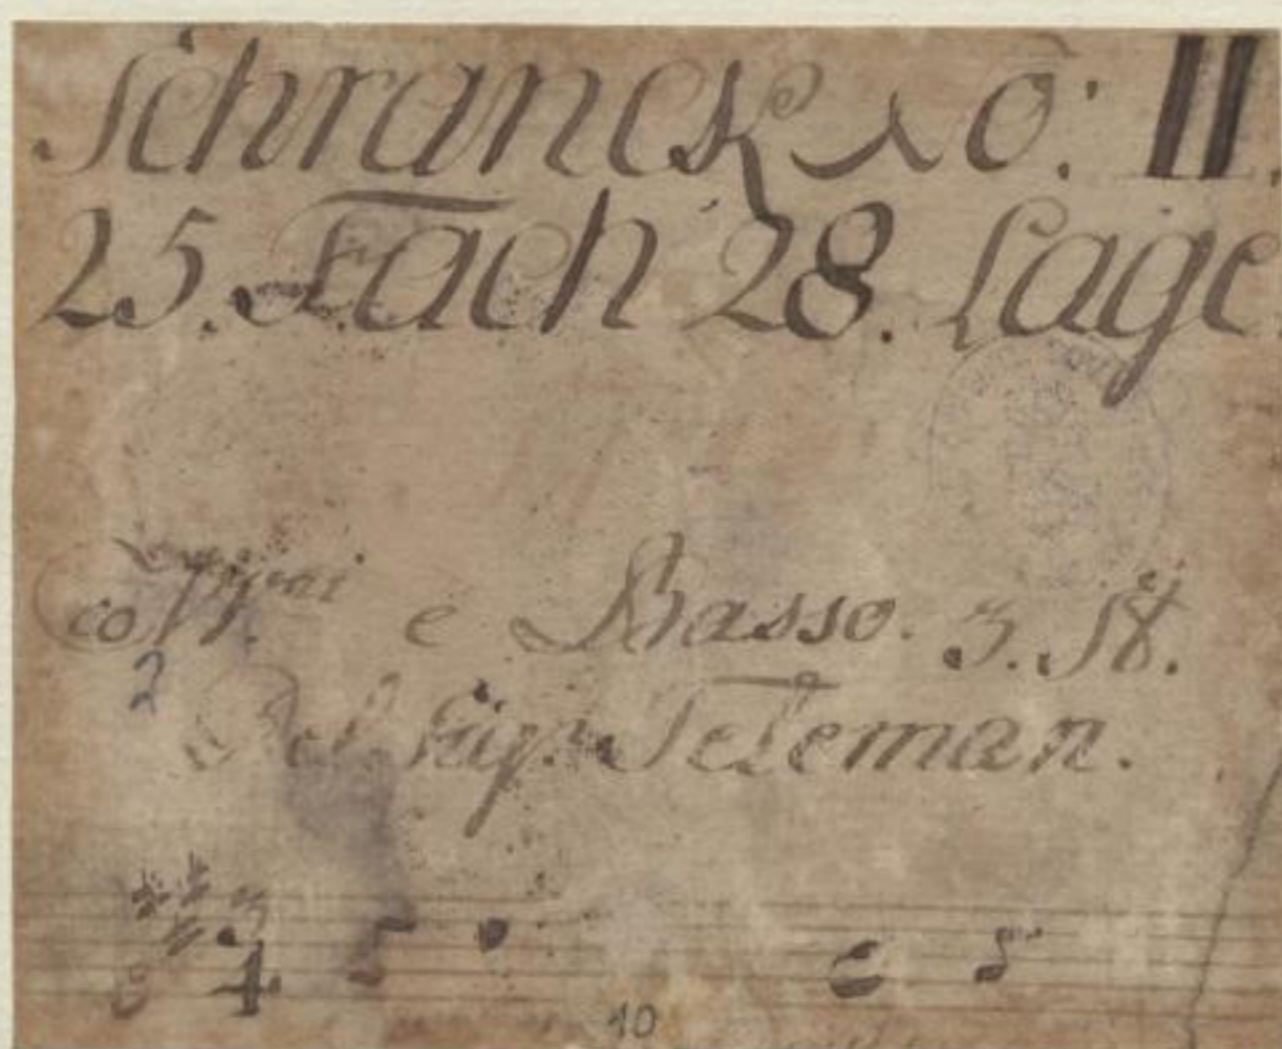 Schranck No: II.
25. Fach 28. Lage
co
e Basso. 3. St.
2
Del Sigr. Teleman.
3
4
10